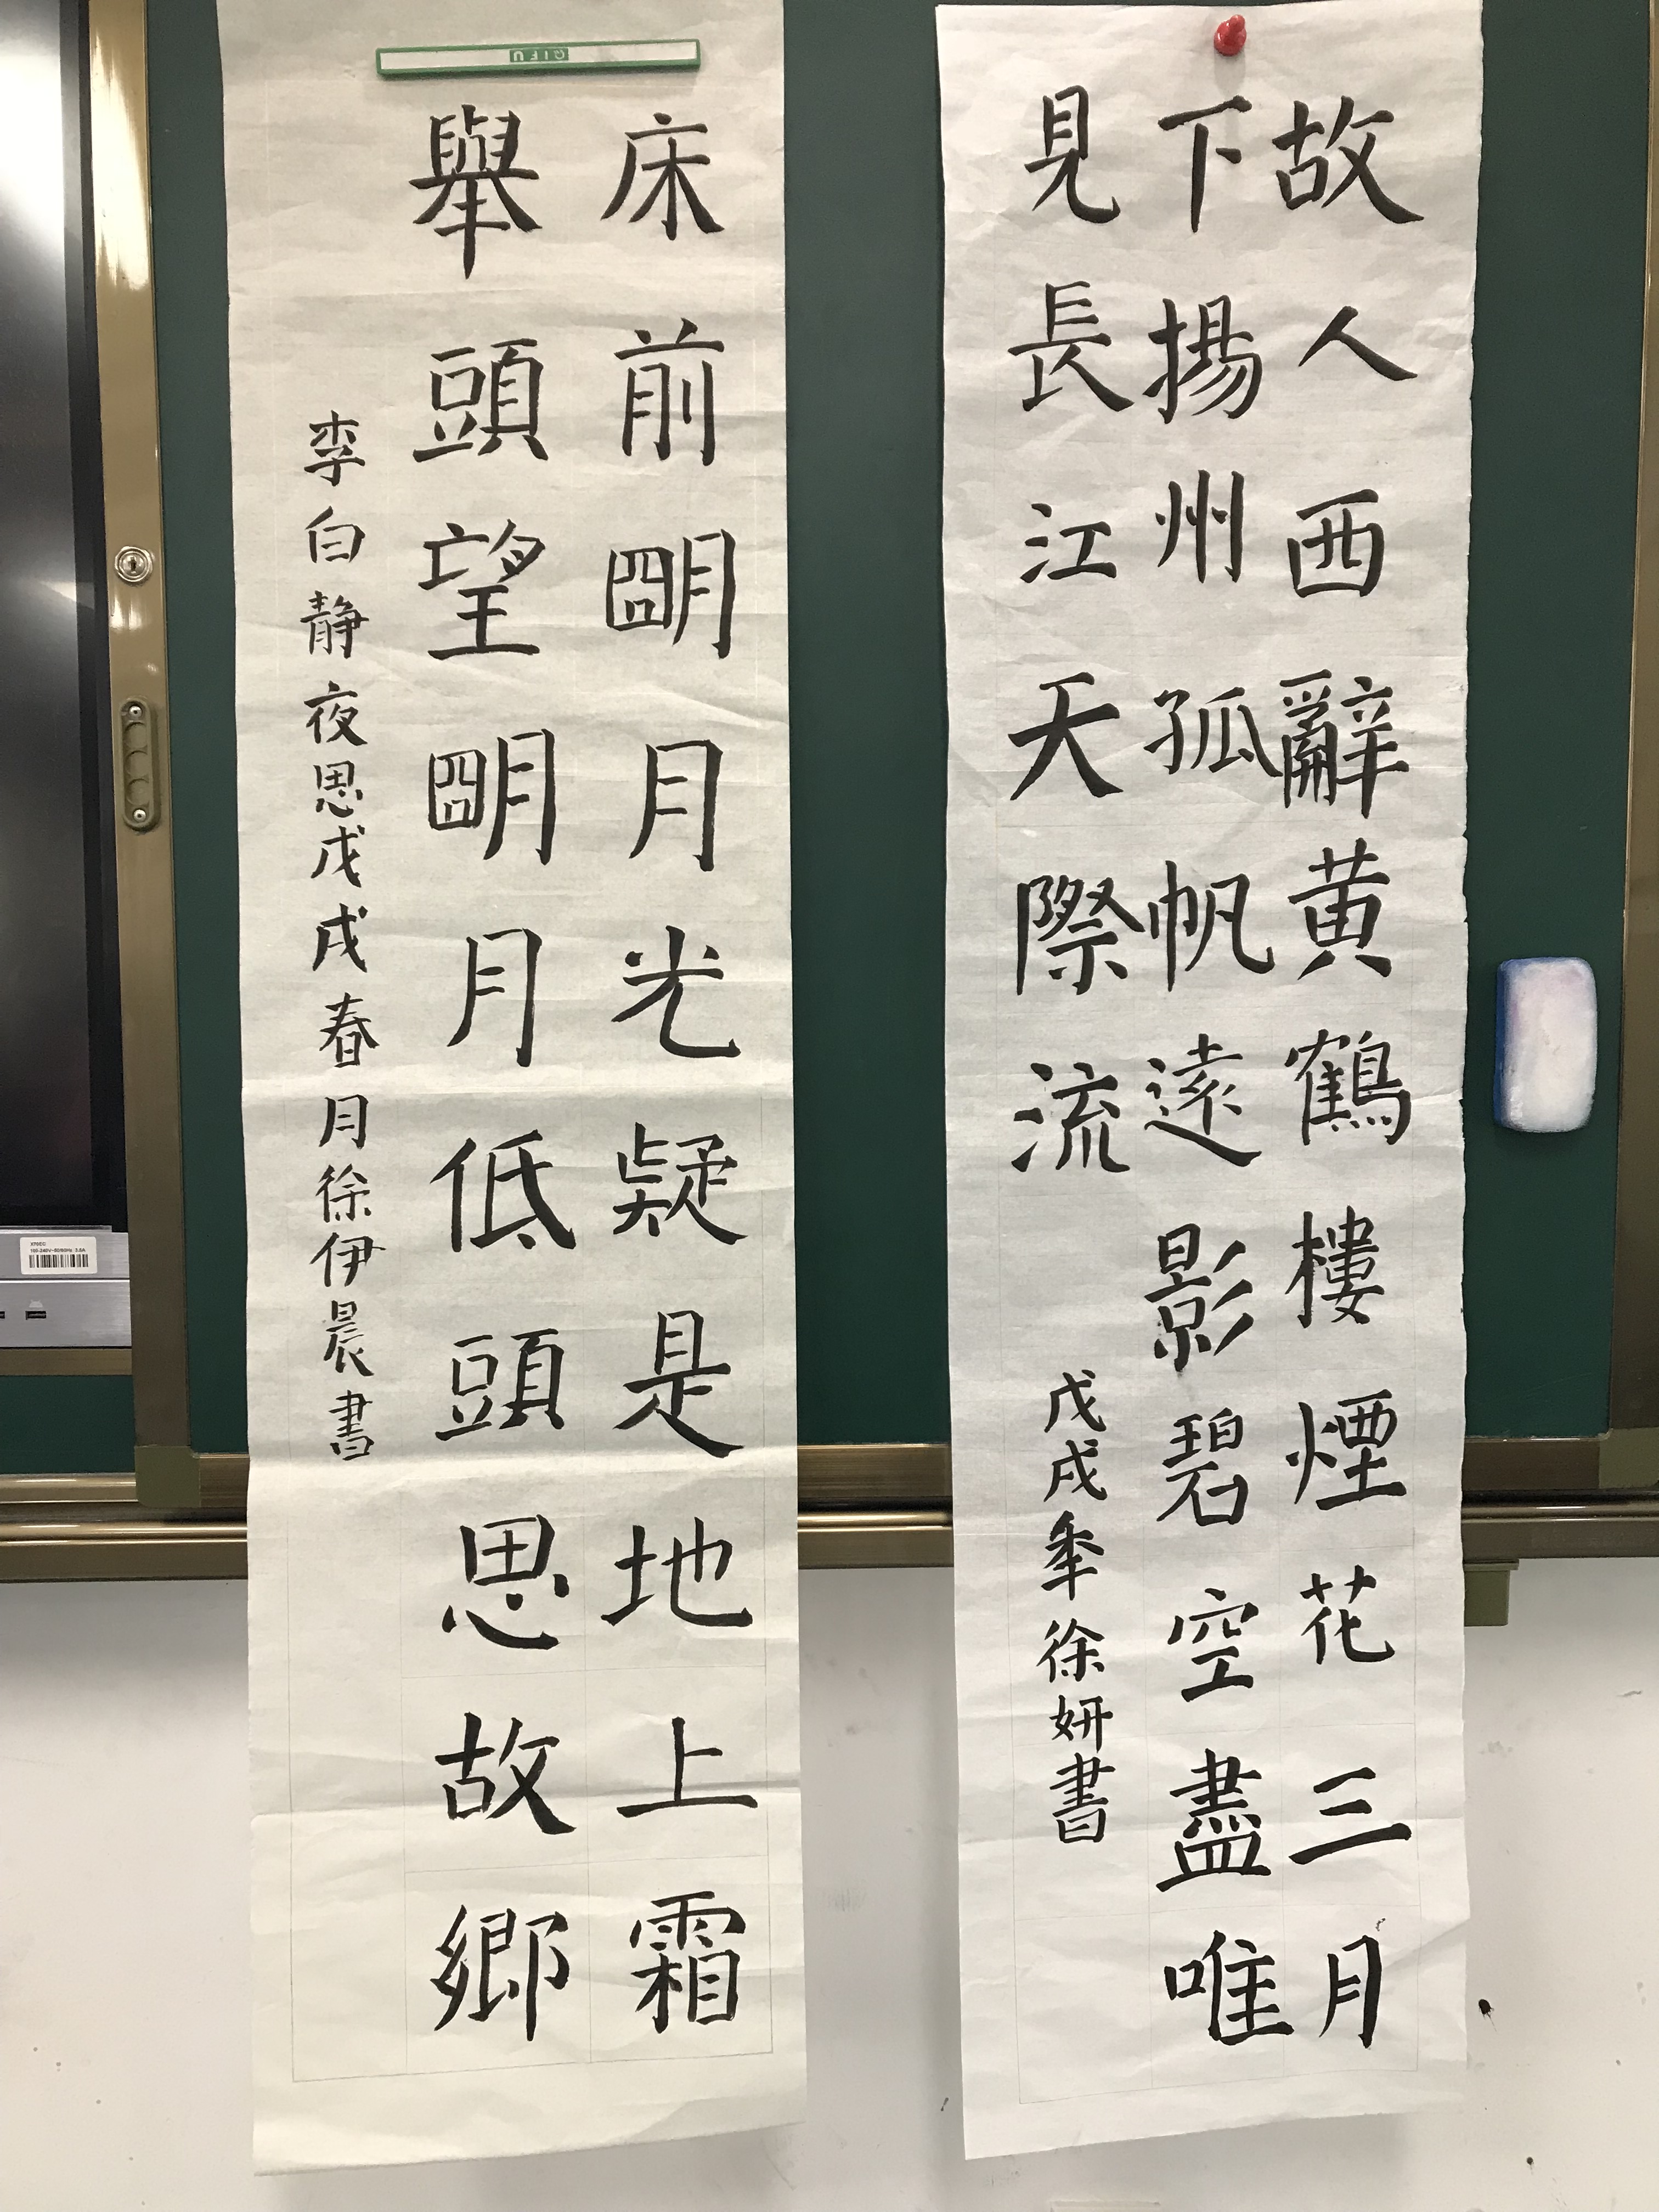 故人西辭黄鶴樓煙花三月
下揚州孤帆遠影碧空盡唯
見長江天際流
戊戌秊徐妍書
QIFU
床前朙月光疑是地上霜
舉頭望朙月低頭思故鄉
李白静夜思戊戌春月徐伊晨書